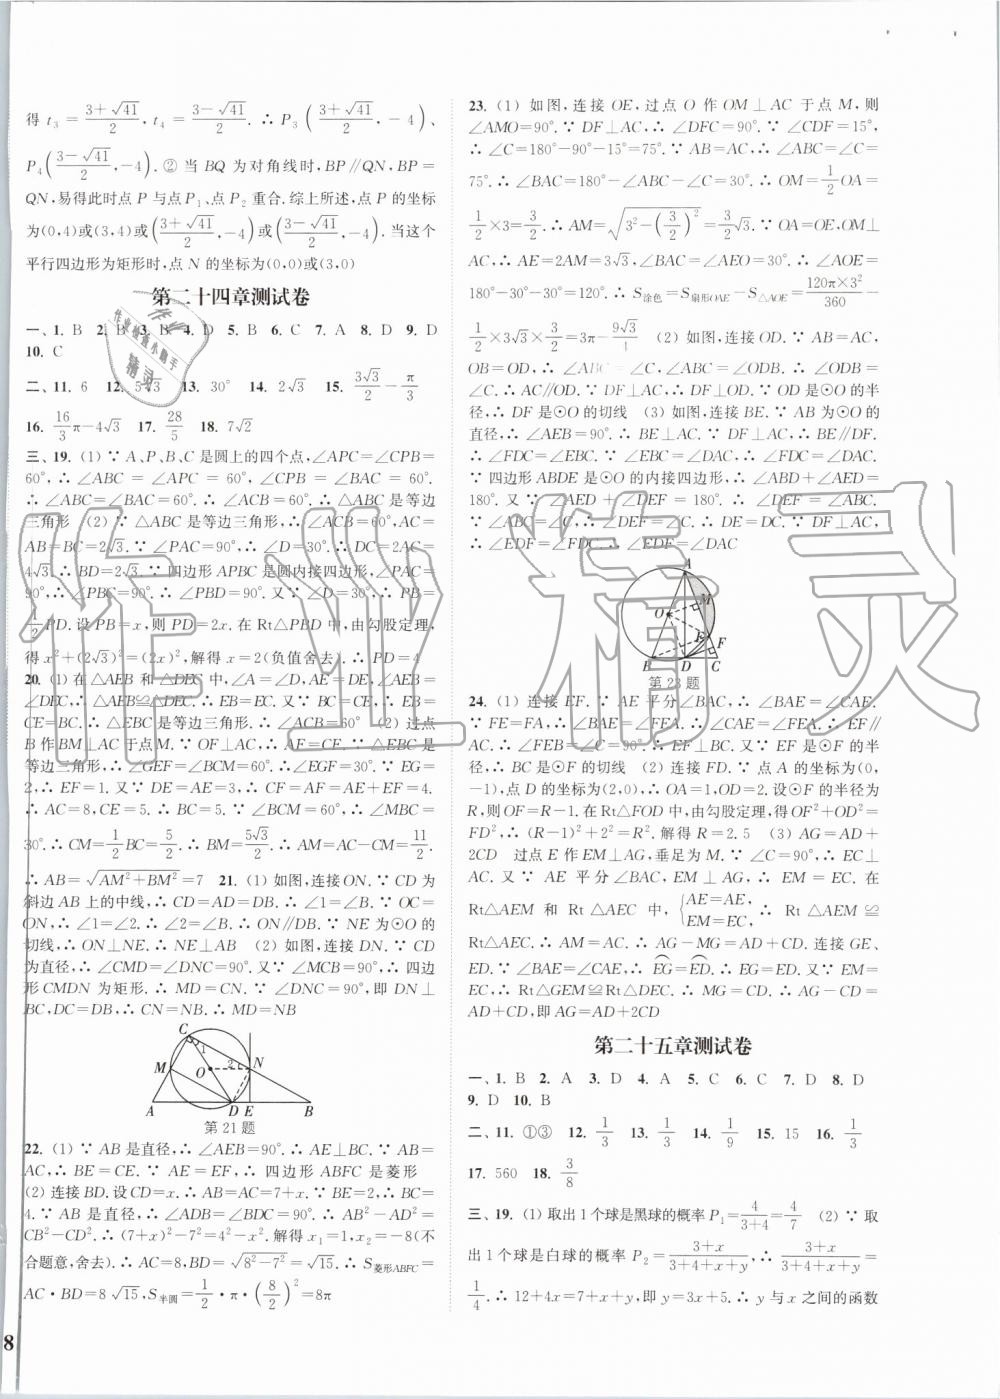 得 t₃=(3+√41)/2, t₄=(3-√41)/2. ∴ P₃((3+√41)/2, -4)、
P₄((3-√41)/2, -4). ② 当 BQ 为对角线时, BP∥QN, BP=
QN, 易得此时点 P 与点 P₁、点 P₂ 重合. 综上所述, 点 P 的坐标
为(0,4)或(3,4)或((3+√41)/2, -4)或((3-√41)/2, -4). 当这个
平行四边形为矩形时, 点 N 的坐标为(0,0)或(3,0)
第二十四章测试卷
一、1. B 2. B 3. B 4. D 5. B 6. C 7. A 8. D 9. D
10. C
二、11. 6 12. 5√3 13. 30° 14. 2√3 15. 3√3/2-π/3
16. 16/3π-4√3 17. 28/5 18. 7√2
三、19. (1) ∵ A、P、B、C 是圆上的四个点, ∠APC=∠CPB=
60°, ∴ ∠ABC=∠APC=60°, ∠CPB=∠BAC=60°.
∴ ∠ABC=∠BAC=60°. ∴ ∠ACB=60°. ∴ △ABC 是等边
三角形 (2) ∵ △ABC 是等边三角形, ∴ ∠ACB=60°, AC=
AB=BC=2√3. ∵ ∠PAC=90°, ∴ ∠D=30°. ∴ DC=2AC=
4√3. ∴ BD=2√3. ∵ 四边形 APBC 是圆内接四边形, ∠PAC=
90°, ∴ ∠PBC=90°. ∴ ∠PBD=90°. 又∵ ∠D=30°, ∴ PB=
1/2PD. 设 PB=x, 则 PD=2x. 在 Rt△PBD 中, 由勾股定理,
得 x²+(2√3)²=(2x)², 解得 x=2(负值舍去). ∴ PD=4
20. (1) 在△AEB 和△DEC 中, ∠A=∠D, AE=DE, ∠AEB=
∠DEC, ∴ △AEB≌△DEC. ∴ EB=EC. 又∵ BC=CE, ∴ EB=
CE=BC. ∴ △EBC 是等边三角形. ∴ ∠ACB=60° (2) 过点
B 作 BM⊥AC 于点 M. ∵ OF⊥AC, ∴ AF=CF. ∵ △EBC 是
等边三角形, ∴ ∠GEF=∠BCM=60°. ∴ ∠EGF=30°. ∵ EG=
2, ∴ EF=1. 又∵ DE=AE=3, ∴ CF=AF=AE+EF=4.
∴ AC=8, CE=5. ∴ BC=5. ∵ ∠BCM=60°, ∴ ∠MBC=
30°. ∴ CM=1/2BC=5/2. ∴ BM=5√3/2. ∴ AM=AC-CM=11/2.
∴ AB=√(AM²+BM²)=7 21. (1) 如图, 连接 ON. ∵ CD 为
斜边 AB 上的中线, ∴ CD=AD=DB. ∴ ∠1=∠B. ∵ OC=
ON, ∴ ∠1=∠2. ∴ ∠2=∠B. ∴ ON∥DB. ∵ NE 为⊙O 的
切线, ∴ ON⊥NE. ∴ NE⊥AB (2) 如图, 连接 DN. ∵ CD
为直径, ∴ ∠CMD=∠DNC=90°. 又∵ ∠MCB=90°, ∴ 四边
形 CMDN 为矩形. ∴ MD=CN. ∵ ∠DNC=90°, 即 DN⊥
BC, DC=DB, ∴ CN=NB. ∴ MD=NB
C 1 M O 2 N A D E B
第 21 题
22. (1) ∵ AB 是直径, ∴ ∠AEB=90°. ∴ AE⊥BC. ∵ AB=
AC, ∴ BE=CE. ∵ AE=EF, ∴ 四边形 ABFC 是菱形
(2) 连接 BD. 设 CD=x. ∴ AC=AB=7+x. ∵ BE=2, ∴ BC=
4. ∵ AB 是直径, ∴ ∠ADB=∠BDC=90°. ∴ AB²-AD²=
CB²-CD². ∴ (7+x)²-7²=4²-x². 解得 x₁=1, x₂=-8(不
合题意, 舍去). ∴ AC=8, BD=√(8²-7²)=√15. ∴ S菱形ABFC=
AC·BD=8√15, S半圆=1/2·π·(8/2)²=8π
8
23. (1) 如图, 连接 OE, 过点 O 作 OM⊥AC 于点 M, 则
∠AMO=90°. ∵ DF⊥AC, ∴ ∠DFC=90°. ∵ ∠CDF=15°,
∴ ∠C=180°-90°-15°=75°. ∵ AB=AC, ∴ ∠ABC=∠C=
75°. ∴ ∠BAC=180°-∠ABC-∠C=30°. ∴ OM=1/2OA=
1/2×3=3/2. ∴ AM=√(3²-(3/2)²)=3/2√3. ∵ OA=OE, OM⊥
AC, ∴ AE=2AM=3√3, ∠BAC=∠OEA=30°. ∴ ∠AOE=
180°-30°-30°=120°. ∴ S涂色=S扇形OAE-S△AOE=120π×3²/360-
1/2×3√3×3/2=3π-9√3/4 (2) 如图, 连接 OD. ∵ AB=AC,
OB=OD, ∴ ∠ABC=∠C, ∠ABC=∠ODB. ∴ ∠ODB=
∠C. ∴ AC∥OD. ∵ DF⊥AC, ∴ DF⊥OD. ∵ OD 是⊙O 的半
径, ∴ DF 是⊙O 的切线 (3) 如图, 连接 BE. ∵ AB 为⊙O 的
直径, ∴ ∠AEB=90°. ∴ BE⊥AC. ∵ DF⊥AC, ∴ BE∥DF.
∴ ∠FDC=∠EBC. ∵ ∠EBC=∠DAC, ∴ ∠FDC=∠DAC.
∵ 四边形 ABDE 是⊙O 的内接四边形, ∴ ∠ABD+∠AED=
180°. 又∵ ∠AED+∠DEF=180°. ∴ ∠DEF=∠ABC.
∵ ∠ABC=∠C, ∴ ∠DEF=∠C. ∴ DE=DC. ∵ DF⊥AC,
∴ ∠EDF=∠FDC. ∴ ∠EDF=∠DAC
A O M E F B D C
第 23 题
24. (1) 连接 EF. ∵ AE 平分∠BAC, ∴ ∠BAE=∠CAE.
∵ FE=FA, ∴ ∠BAE=∠FEA. ∴ ∠CAE=∠FEA. ∴ EF∥
AC. ∴ ∠FEB=∠C=90°. ∴ EF⊥BC. 又∵ EF 是⊙F 的半
径, ∴ BC 是⊙F 的切线 (2) 连接 FD. ∵ 点 A 的坐标为(0,
-1), 点 D 的坐标为(2,0), ∴ OA=1, OD=2. 设⊙F 的半径为
R, 则 OF=R-1. 在 Rt△FOD 中, 由勾股定理, 得 OF²+OD²=
FD², ∴ (R-1)²+2²=R². 解得 R=2.5 (3) AG=AD+
2CD 过点 E 作 EM⊥AG, 垂足为 M. ∵ ∠C=90°, ∴ EC⊥
AC. 又∵ AE 平分∠BAC, EM⊥AG, ∴ EM=EC. 在
Rt△AEM 和 Rt△AEC 中, {AE=AE, EM=EC, ∴ Rt△AEM≌
Rt△AEC. ∴ AM=AC. ∴ AG-MG=AD+CD. 连接 GE、
ED. ∵ ∠BAE=∠CAE, ∴ EG⌒=ED⌒. ∴ EG=ED. 又∵ EM=
EC, ∴ Rt△GEM≌Rt△DEC. ∴ MG=CD. ∴ AG-CD=
AD+CD, 即 AG=AD+2CD
第二十五章测试卷
一、1. B 2. A 3. D 4. A 5. C 6. C 7. D 8. D
9. D 10. B
二、11. ①③ 12. 1/3 13. 1/3 14. 1/9 15. 15 16. 1/3
17. 560 18. 3/8
三、19. (1) 取出 1 个球是黑球的概率 P₁=4/(3+4)=4/7 (2) ∵ 取
出 1 个球是白球的概率 P₂=(3+x)/(3+4+x+y), ∴ (3+x)/(3+4+x+y)=
1/4. ∴ 12+4x=7+x+y, 即 y=3x+5. ∴ y 与 x 之间的函数
作业精灵
作业检查小助手
作业
精灵